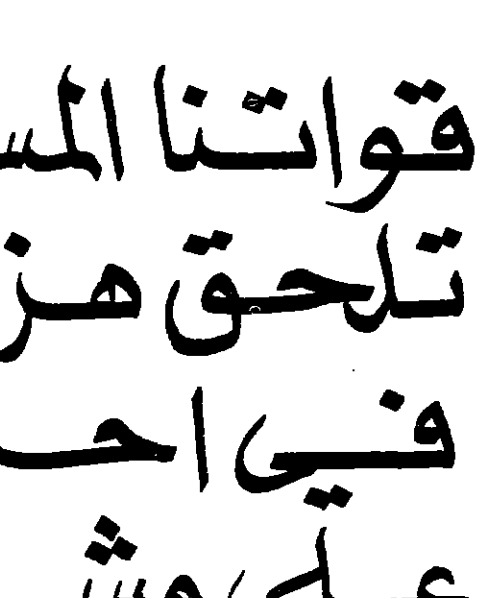 قواتنا المس
تلحق هز
في احـ